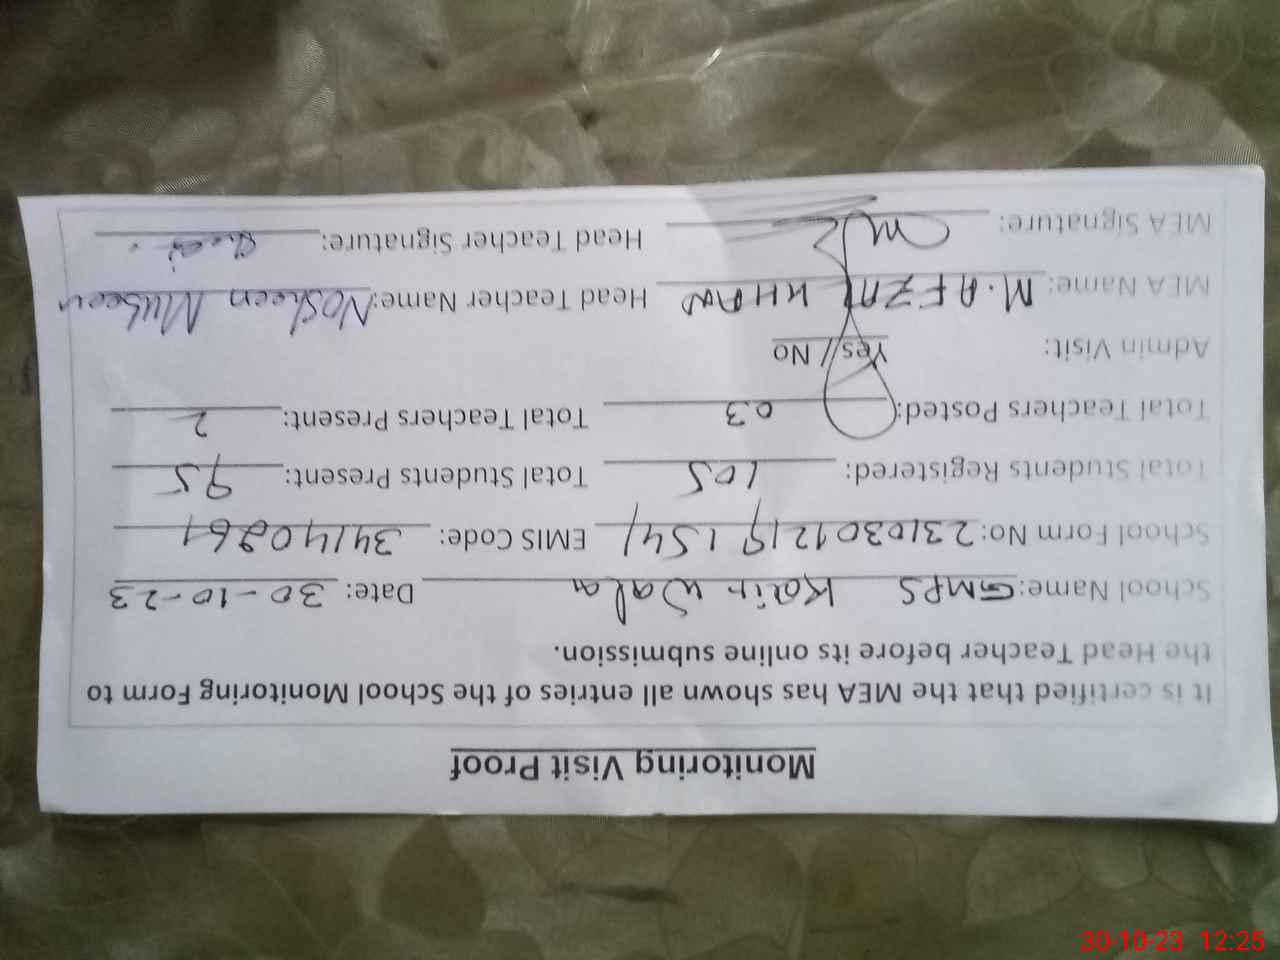 Monitoring Visit Proof
It is certified that the MEA has shown all entries of the School Monitoring Form to
the Head Teacher before its online submission.
School Name: GMPS Kair Wala Date: 30-10-23
School Form No: 2310301219 1541 EMIS Code: 34140261
Total Students Registered: 105 Total Students Present: 95
Total Teachers Posted: 03 Total Teachers Present: 2
Admin Visit: Yes / No
MEA Name: M.AFZAL KHAN Head Teacher Name: Nosheen Mubeen
MEA Signature: Head Teacher Signature:
30-10-23 12:25